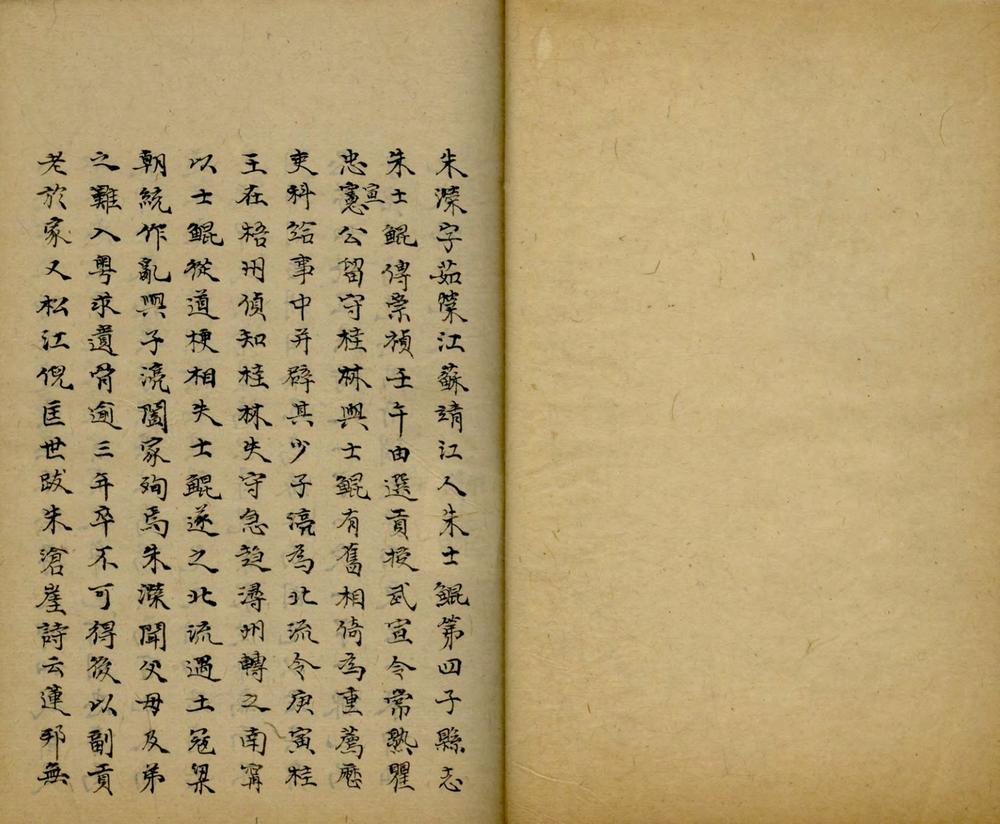 朱濚字茹縈江蘇靖江人朱士鯤第四子縣志
朱士鯤傳崇禎壬午由選貢授武宣令常熟瞿
忠宣公留守桂林與士鯤有舊相倚為重薦歷
吏科給事中并辟其少子湸為北流令庚寅桂
王在梧州偵知桂林失守急趨潯州轉之南甯
以士鯤從道梗相失士鯤遂之北流遇土冦梁
朝統作亂與子湸闔家殉焉朱濚聞父母及弟
之難入粵求遺骨逾三年卒不可得後以副貢
老於家又松江倪匡世跋朱滄崖詩云蓮邦無